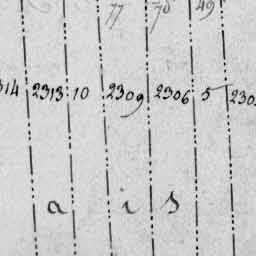 77 70 49
314 2313 10 2309 2306 5 230
a i s